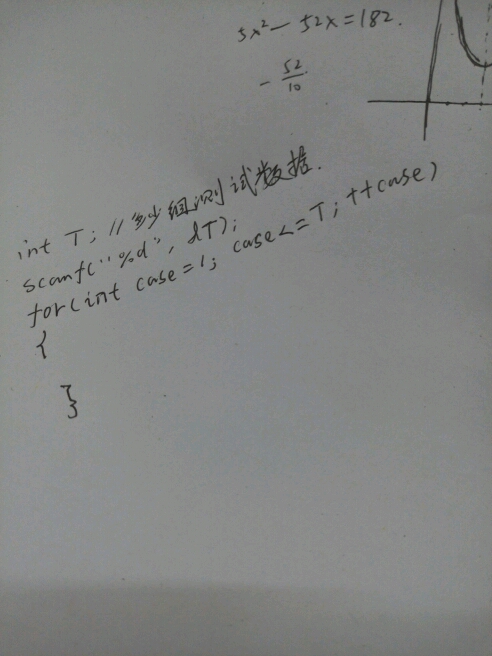 5x² - 52x = 182.
- 52/10
int T; //多少组测试数据.
scanf("%d", &T);
for(int case=1; case<=T; ++case)
{
}